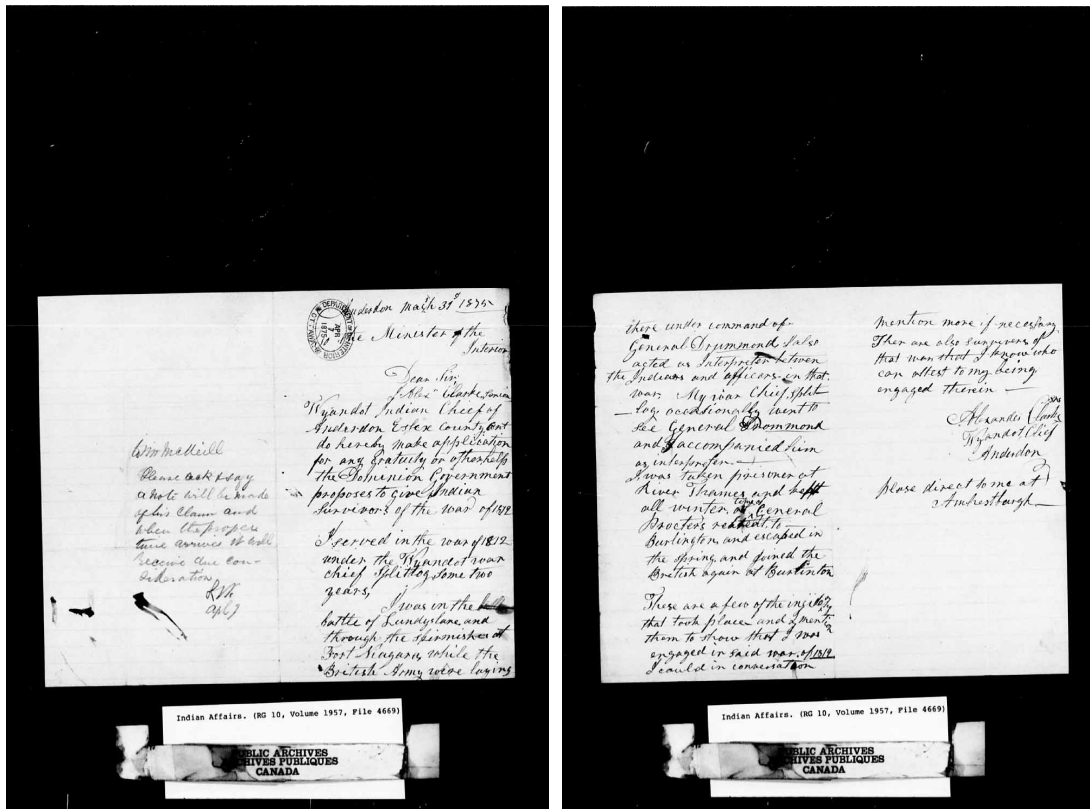 Anderdon March 31st 1875
DEPARTMENT OF THE INTERIOR
APR 7 1875
The Minister of the
Interior
Dear Sir
I Alexr Clarke, Senior
Wyandot Indian Chief of
Anderdon Essex County Ont
do hereby make application
for any gratuity or other help
the Dominion Government
proposes to give Indian
Survivors of the war of 1812
I served in the war of 1812
under the Wyandot war
chief Splitlog some two
years,
I was in the
battle of Lundyslane and
through the skirmishes at
Fort Niagara while the
British Army were laying
Please ask & say
a note will be made
of his Claim and
when the proper
time arrives it will
receive due con-
sideration
Apl 7
Indian Affairs. (RG 10, Volume 1957, File 4669)
PUBLIC ARCHIVES
ARCHIVES PUBLIQUES
CANADA
there under command of
General Drummond I also
acted as Interpretor between
the Indians and officers in that
war. My war Chief, split
log occasionally went to
see General Drommond
and I accompanied him
as interpreter.
I was taken prisoner at
River Thames and kept
all winter, at time of General
Procters retreat to
Burlington, and escaped in
the spring and joined the
British again at Burlinton
These are a few of the
that took place and I mention
them to show that I was
engaged in said war of 1812
I could in conversation
mention more if necessary.
Ther are also survivers of
that war that I know who
can attest to my being
engaged therein
Alexander Clarke Snr
Wyandot Chief
Anderdon
please direct to me at
Amherstburgh
Indian Affairs. (RG 10, Volume 1957, File 4669)
PUBLIC ARCHIVES
ARCHIVES PUBLIQUES
CANADA